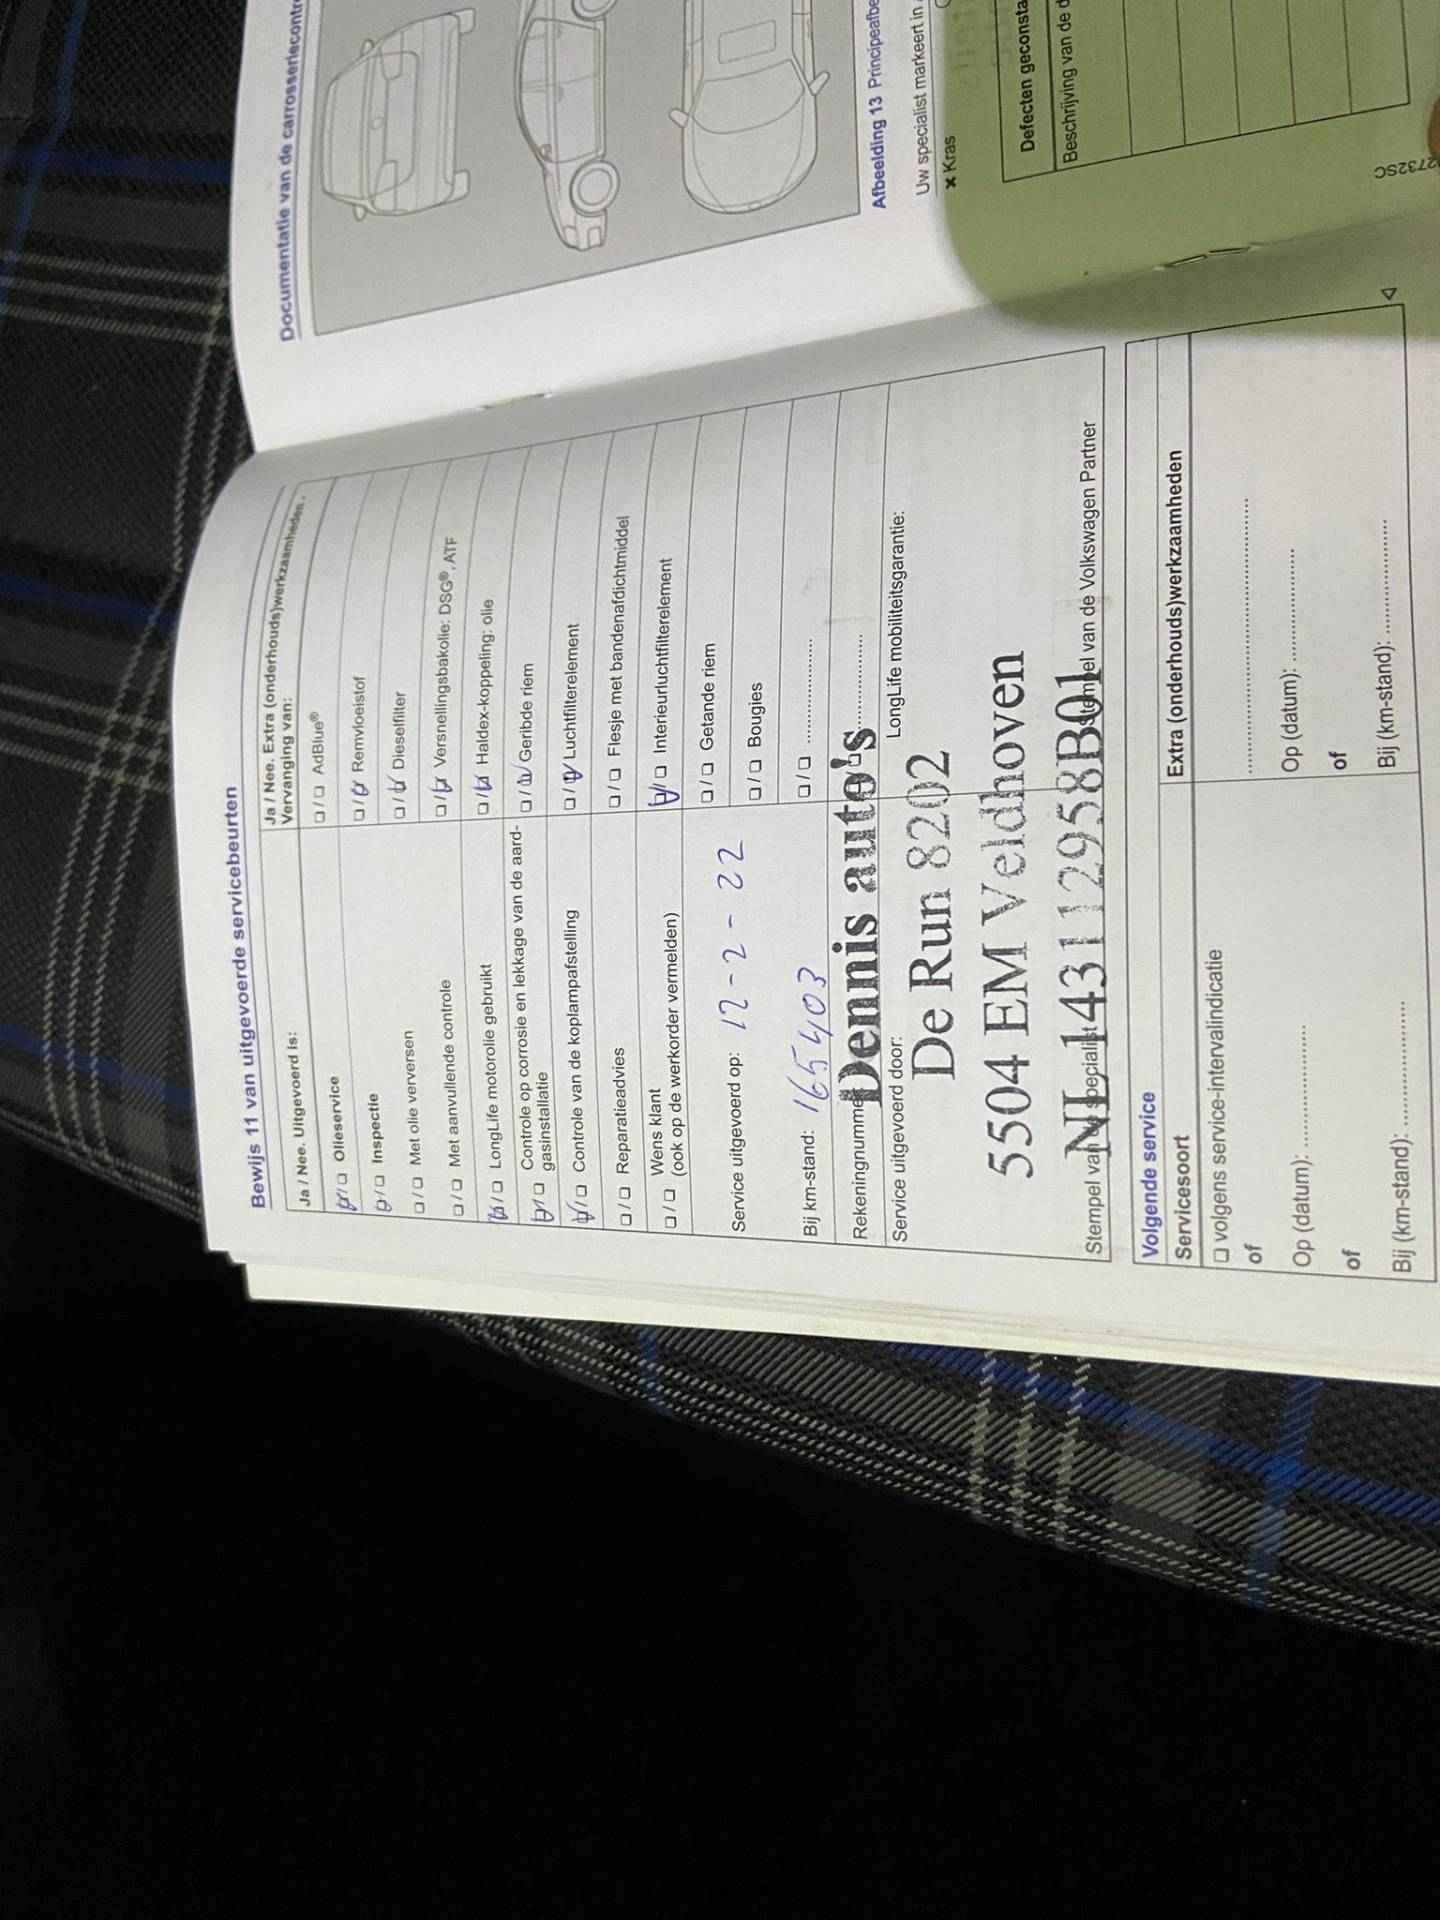 Bewijs 11 van uitgevoerde servicebeurten
Ja / Nee. Uitgevoerd is:
❏ / ❏ Olieservice
❏ / ❏ Inspectie
❏ / ❏ Met olie verversen
❏ / ❏ Met aanvullende controle
❏ / ❏ LongLife motorolie gebruikt
❏ / ❏ Controle op corrosie en lekkage van de aard-
gasinstallatie
❏ / ❏ Controle van de koplampafstelling
❏ / ❏ Reparatieadvies
❏ / ❏ Wens klant
(ook op de werkorder vermelden)
Service uitgevoerd op: 12-2-22
Bij km-stand: 165403
Ja / Nee. Extra (onderhouds)werkzaamheden.
Vervanging van:
❏ / ❏ AdBlue®
❏ / ❏ Remvloeistof
❏ / ❏ Dieselfilter
❏ / ❏ Versnellingsbakolie: DSG®, ATF
❏ / ❏ Haldex-koppeling: olie
❏ / ❏ Geribde riem
❏ / ❏ Luchtfilterelement
❏ / ❏ Flesje met bandenafdichtmiddel
❏ / ❏ Interieurluchtfilterelement
❏ / ❏ Getande riem
❏ / ❏ Bougies
❏ / ❏ ....................
Rekeningnumme
Service uitgevoerd door:
LongLife mobiliteitsgarantie:
Dennis auto's
De Run 8202
5504 EM Veldhoven
NL143112958B01
Stempel van de specialist
Stempel van de Volkswagen Partner
Volgende service
Servicesoort
❏ volgens service-intervalindicatie
of
Op (datum): ....................
of
Bij (km-stand): ....................
Extra (onderhouds)werkzaamheden
........................................
Op (datum): ....................
of
Bij (km-stand): ....................
Documentatie van de carrosseriecontr
Afbeelding 13 Principeafbe
Uw specialist markeert in
× Kras
Defecten geconsta
Beschrijving van de d
2732SC